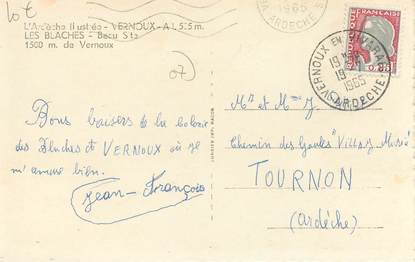 10 €
L'Ardèche Illustrée - VERNOUX - Alt. 585 m.
LES BLACHES - Beau Site
1500 m. de Vernoux
07
1965
ARDECHE
FRANÇAISE
0,25
VERNOUX EN VIVARAIS
19
1965
ARDECHE
Bons baisers de la Colonie
des Blaches et VERNOUX où je
m'amuse bien.
Jean-François
Mr et Mme J.
Chemin des Goules "Villa
TOURNON
(Ardèche)